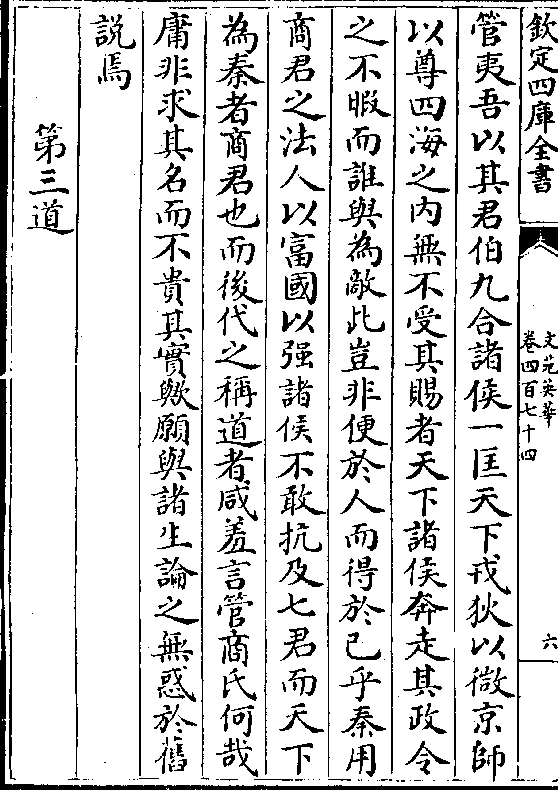 欽定四庫全書
文苑英華
卷四百七十四
六
管夷吾以其君伯九合諸侯一匡天下戎狄以微京師
以尊四海之内無不受其賜者天下諸侯奔走其政令
之不暇而誰與為敵此豈非便於人而得於已乎秦用
商君之法人以富國以强諸侯不敢抗及七君而天下
為秦者商君也而後代之稱道者咸羞言管商氏何哉
庸非求其名而不貴其實歟願與諸生論之無惑於舊
説焉
第三道